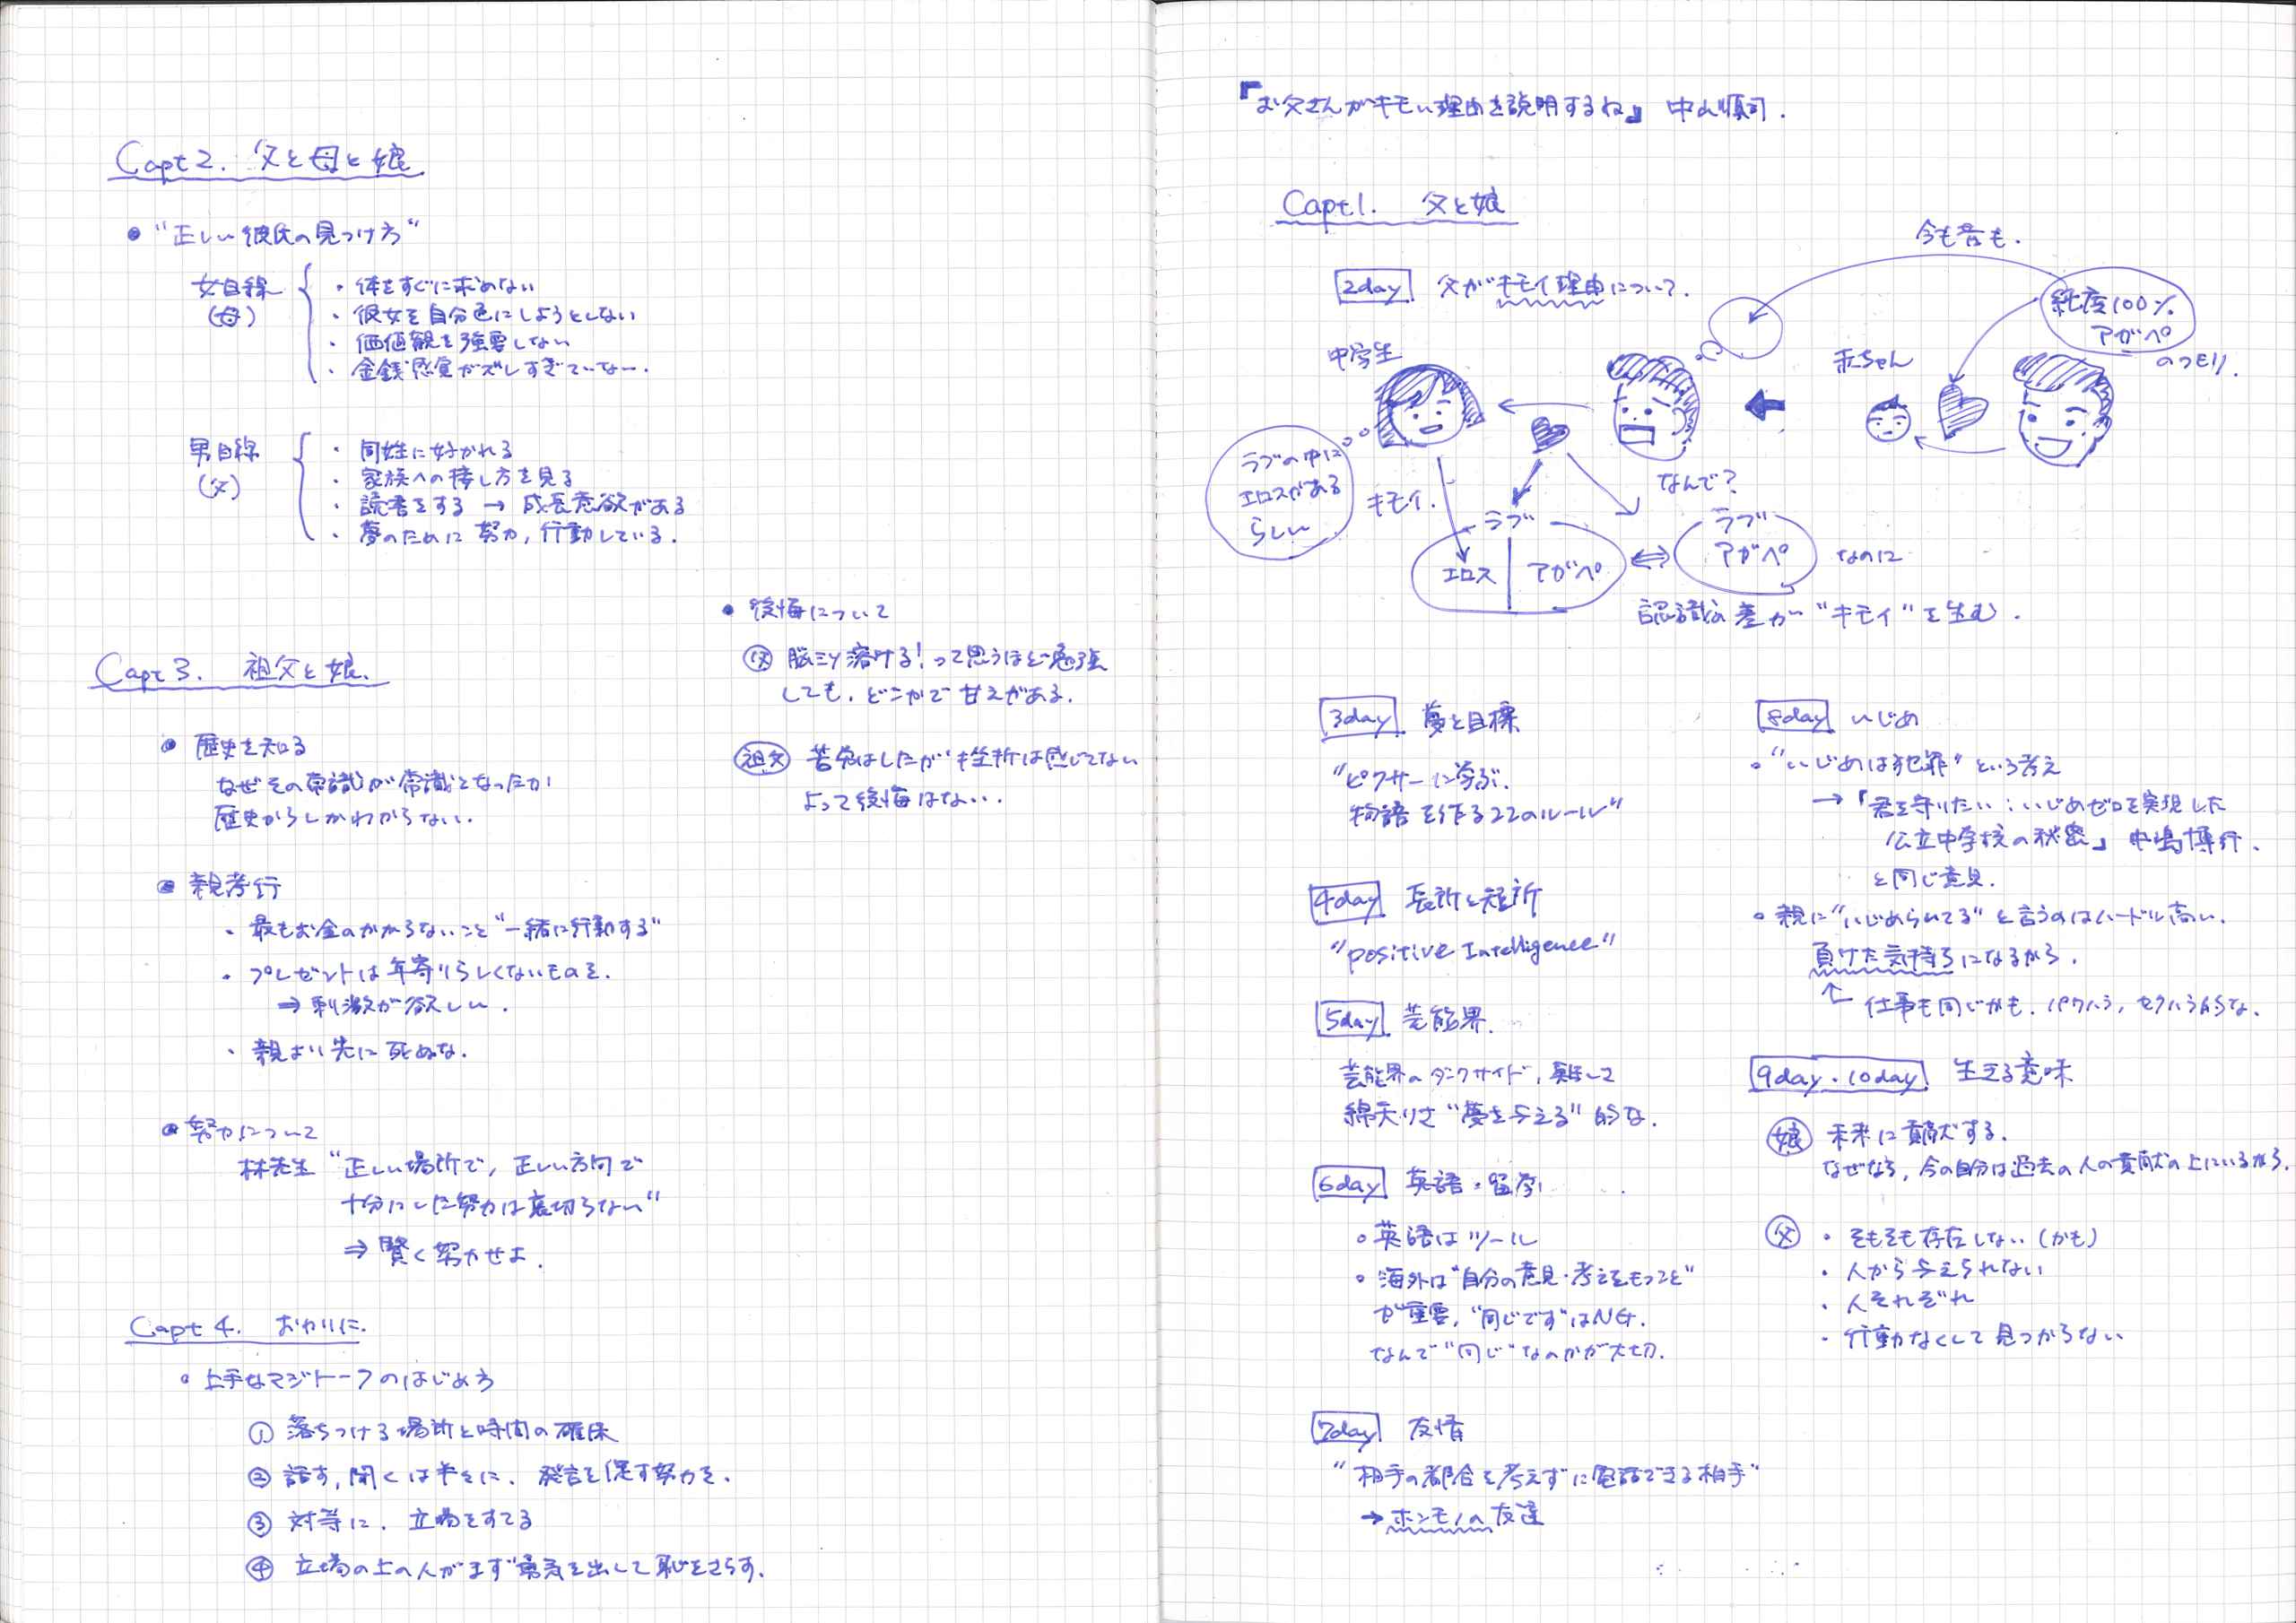 『お父さんがキモい理由を説明するね』 中山順司.
Capt1. 父と娘
2day 父がキモイ理由について.
今も昔も.
純度100%
アガペ
のつもり.
赤ちゃん
中学生
ラブの中に
エロスがある
らしい
キモイ.
なんで?
ラブ
エロス アガペ
ラブ
アガペ
なのに
認識の差が"キモイ"を生む.
3day 夢と目標
"ピクサーに学ぶ.
物語を作る22のルール"
4day 長所と短所
"positive Intelligence"
5day 芸能界.
芸能界のダークサイド,
綿矢りさ"夢を与える"的な.
6day 英語・留学
○英語はツール
○海外は"自分の意見・考えをもつこと"
が重要, "同じです"はNG.
なんで"同じ"なのかが大切.
7day 友情
"相手の都合を考えずに電話できる相手"
→ホンモノの友達
8day いじめ
○"いじめは犯罪"という考え
→「君を守りたい:いじめゼロを実現した
公立中学校の秘密」 中嶋博行.
と同じ意見.
○親に"いじめられてる"と言うのはハードル高い.
負けた気持ちになるから.
仕事も同じかも. パワハラ, セクハラ的な.
9day・10day 生きる意味
娘 未来に貢献する.
なぜなら, 今の自分は過去の人の貢献の上にいるから.
父 ・そもそも存在しない(かも)
・人から与えられない
・人それぞれ
・行動なくして見つからない
Capt2. 父と母と娘
●"正しい彼氏の見つけ方"
女目線
(母)
・体をすぐに求めない
・彼女を自分色にしようとしない
・価値観を強要しない
・金銭感覚がズレすぎていない.
男目線
(父)
・同姓に好かれる
・家族への接し方を見る
・読書をする → 成長意欲がある
・夢のために努力, 行動している.
Capt3. 祖父と娘.
●歴史を知る
なぜその常識が常識となったか
歴史からしかわからない.
●親孝行
・最もお金のかからないこと"一緒に行動する"
・プレゼントは年寄りらしくないものを.
⇒刺激が欲しい.
・親より先に死ぬな.
●努力について
林先生"正しい場所で, 正しい方向で
十分にした努力は裏切らない"
⇒賢く努力せよ.
●後悔について
父 脳ミソ溶ける!って思うほど勉強
しても. どこかで甘えがある.
祖父 苦労はしたが挫折は感じてない
よって後悔はない.
Capt4. おわりに.
○上手なマジトークのはじめ方
① 落ちつける場所と時間の確保
② 話す, 聞くは半々に. 発言を促す努力を.
③ 対等に. 立場をすてる
④ 立場の上の人がまず勇気を出して恥をさらす.